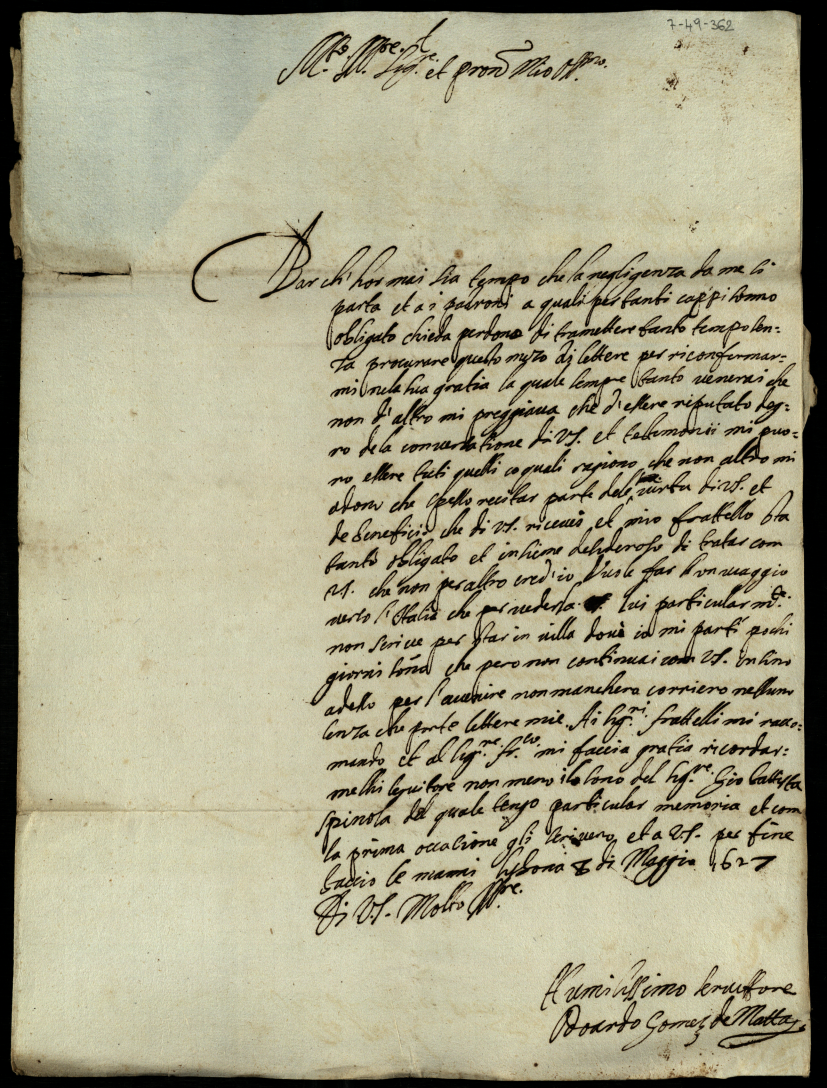 7-49-362
M.to Ill.re Sig.re et pron Mio Oss.mo
Par ch'hormai sia tempo che la negligenza da me si
parta et a i padroni a quali per tanti cappi sonno
obligato chieda perdono di tramettere tanto tempo sen-
za procurare questo mezo di lettere per riconfermar-
mi nela sua gratia la quale sempre tanto venerai che
non d'altro mi preggiava che d'essere reputato deg-
no dela conversatione di VS. et testimonii mi puo-
no essere tuti quelli co quali ragiono che non altro mi
che spesso recitar parte dele sue virtu di VS. et
de beneficii che di VS. ricevei, et mio frattello sta
tanto obligato et insieme desideroso di tratar com
VS. che non per altro cred'io vuole far un viaggio
verso l'Italia che per vederla. lui particular m.te
non scrive per star in villa dove io mi parti pochi
giorni sono che pero non continuai com VS. insino
adesso per l'avenire non manchera corriero nessuno
senza che porte lettere mie. Ai sig.ri frattelli mi racco-
mando et al sig.re mi faccia gratia ricordar-
melhi servitore non meno il sono del sig.re Gio battista
Spinola del quale tengo particular memoria et com
la prima occasione gli scrivero, et a VS. per fine
baccio le manni Lisbona 8 di Maggio 1627
Di VS. Molto Ill.re
Humilissimo servittore
Odoardo Gomez de Matta